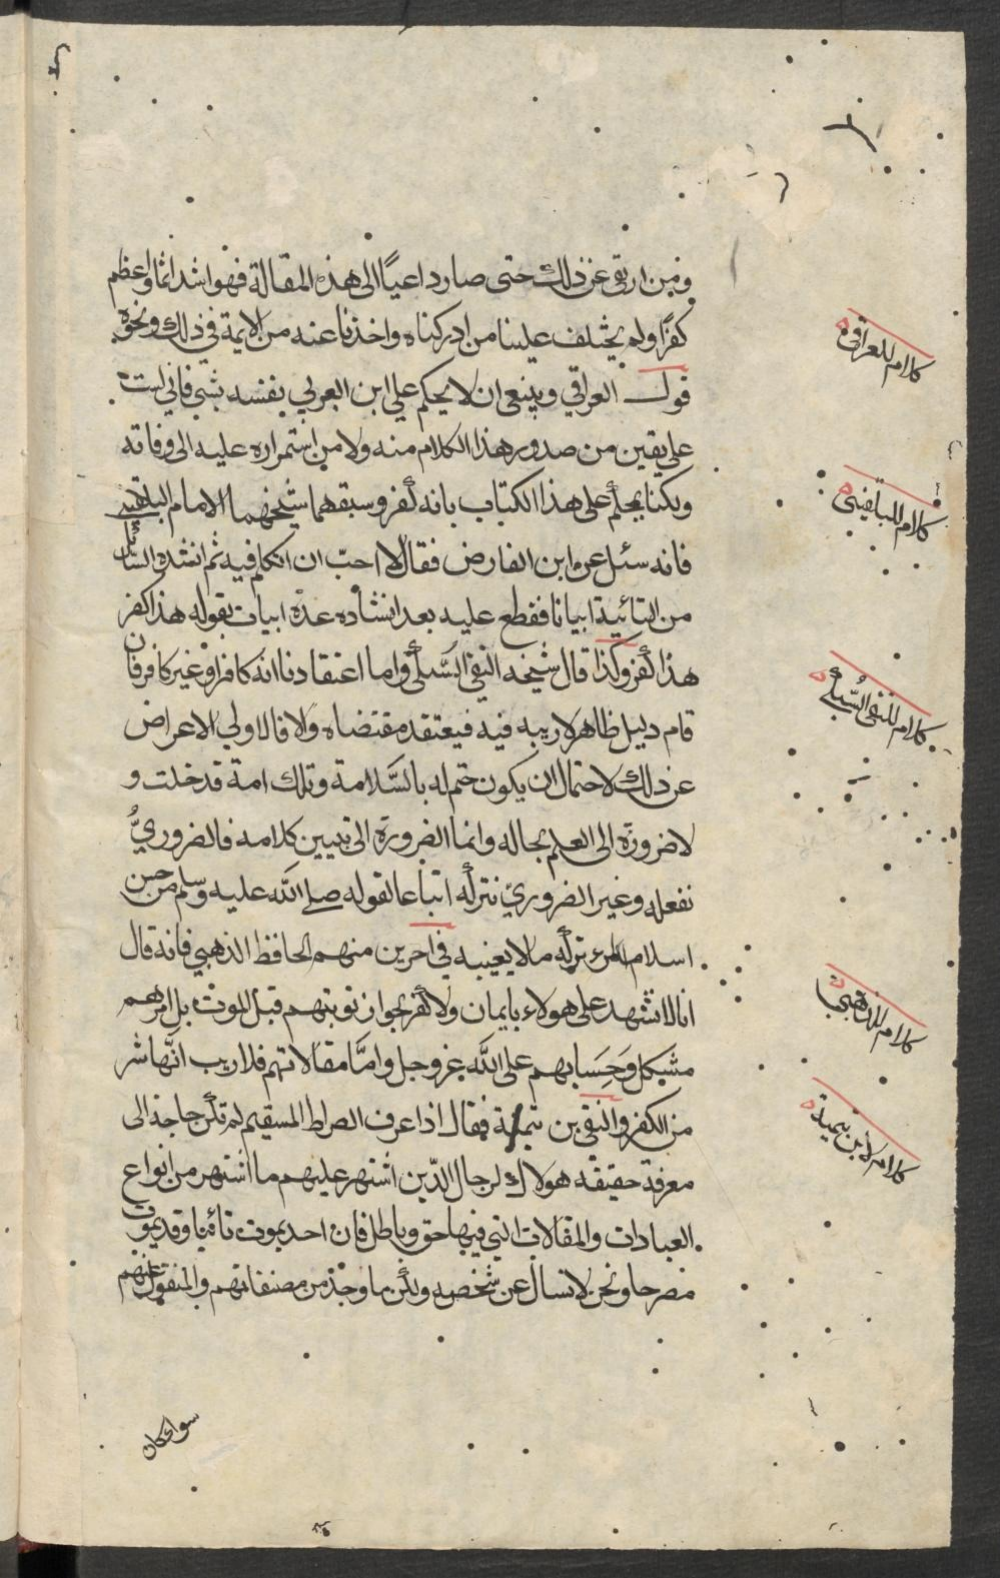 ومن ارتقى عن ذلك حتى صار داعيًا الى هذه المقالة فهو اشد اثما واعظم
كفرًا ولم يختلف علينا من ادركناه واخذنا عنه من الايمة في ذلك ونحوه
قول العراقي وينبغي ان لا يحكم علي ابن العربي بنفسه بشي فاني لست
على يقين من صدور هذا الكلام منه ولا من استمراره عليه الى وفاته
ولكنا نحكم على هذا الكتاب بانه كفر وسبقهما شيخهما الامام البلقيني
فانه سئل عن ابن الفارض فقال لا احب ان اتكلم فيه ثم انشده السائل
من التائية ابياتا فقطع عليه بعد انشاده عدة ابيات بقوله هذا كفر
هذا كفر وكذا قال شيخه التقي السبكي واما اعتقادنا انه كافر او غير كافر فان
قام دليل ظاهر لا ريبه فيه فيعتقد مقتضاه والا فالاولي الاعراض
عن ذلك لاحتمال ان يكون ختم له بالسَّلامة وتلك امة قد خلت و
لا ضرورة الى العلم بحاله وانما الضرورة الى تبيين كلامه فالضروريُّ
نفعله وغير الضروري نتركه اتباعا لقوله صلى الله عليه وسلم من حسن
اسلام المرء تركه مالا يعنيه في اخرين منهم الحافظ الذهبي فانه قال
انا لا نشهد على هولاء بايمان ولا كفر لجواز توبتهم قبل الموت بل امرهم
مشكل وَحِسَابهم على الله عز وجل وامَّا مقالاتهم فلا ريب انَّها شر
من الكفر والتقي بن تيمية فقال اذا عرف الصراط المسقيم لم تكن حاجة الى
معرفة حقيقه هولاء الرجال الذين اشتهر عليهم ما اشتهر من انواع
العبادات والمقالات التي فيها حق وباطل فان احد يموت تائبا وقد يموت
مصرحا ونحن لا نسال عن شخصه ولكن ما وجد من مصنفاتهم والمنقول عنهم
سوا كان
كلام العراقي
كلام البلقيني
كلام التقي السُّبكي
كلام الذهبي
كلام ابن تيمية